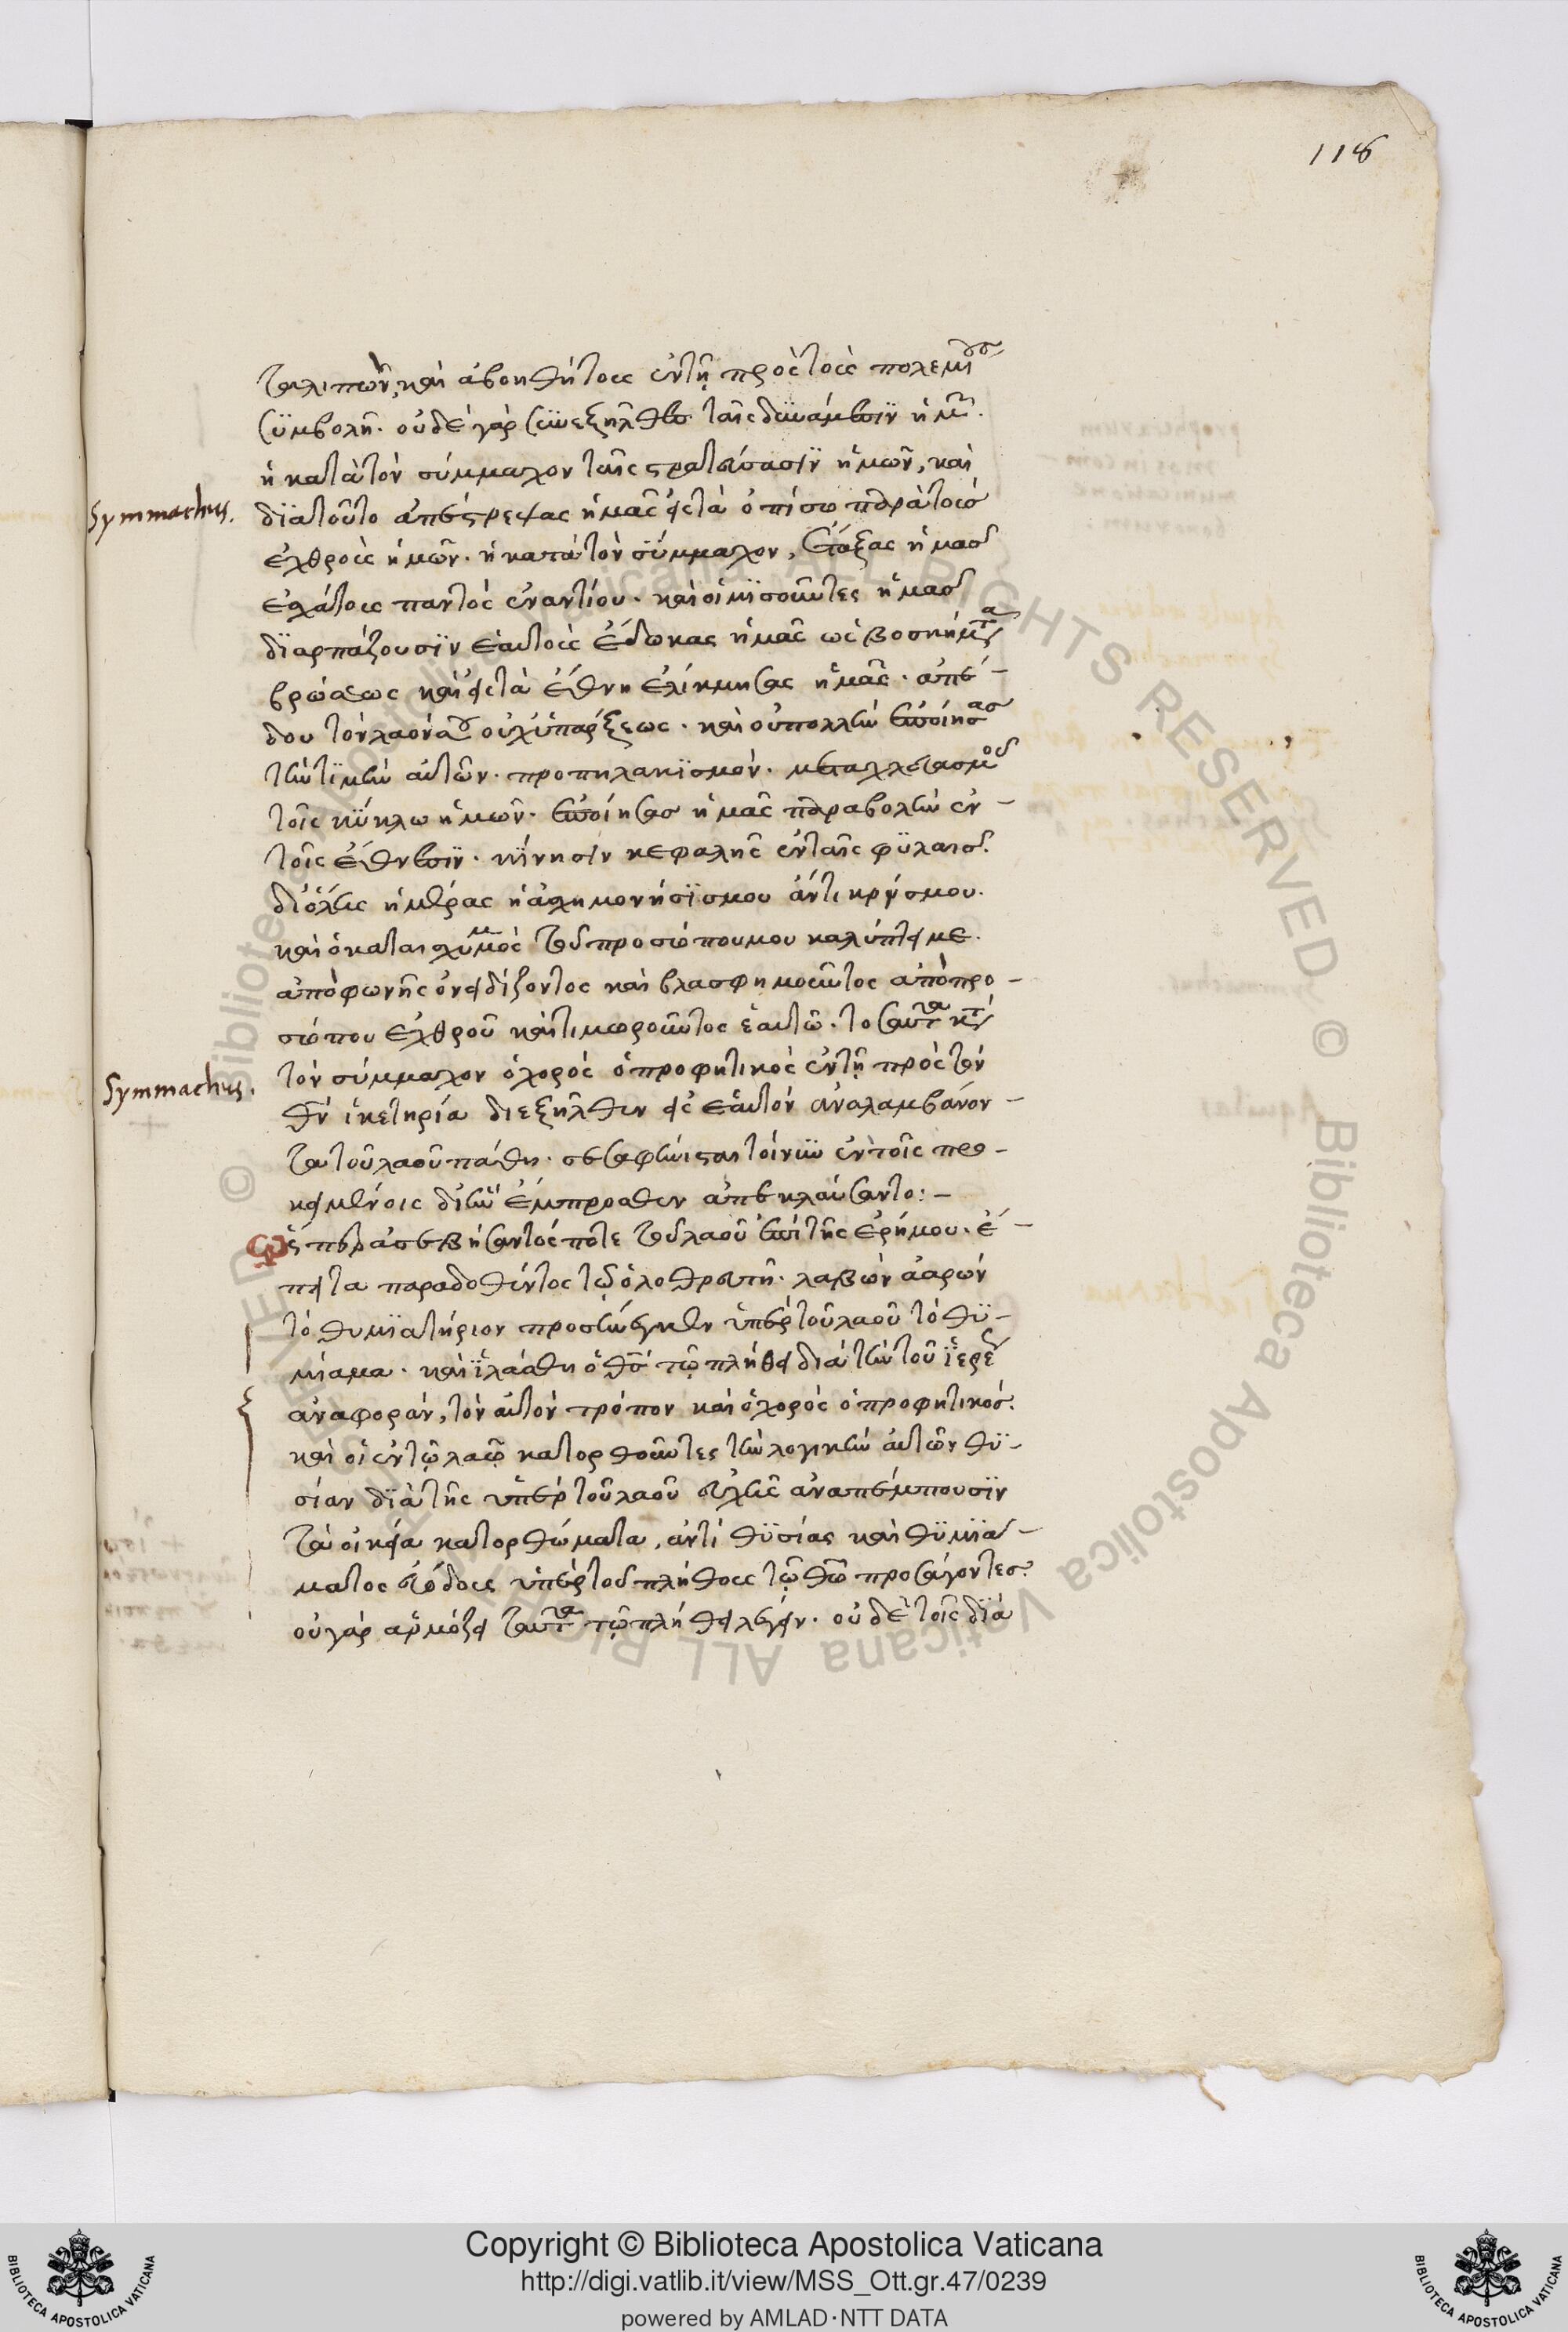 118
ταλιπὼν, καὶ ἀβοηθήτους ἐν τῇ πρὸς τοὺς πολεμίους
συμβολῇ. οὐδὲ γὰρ συνεξῆλθες ταῖς δυνάμεσιν ἡμῶν.
ἢ κατὰ τὸν σύμμαχον ταῖς στρατείαις ἡμῶν, καὶ
Symmachus.
διὰ τοῦτο ἀπέστρεψας ἡμᾶς εἰς τὰ ὀπίσω παρὰ τοὺς
ἐχθροὺς ἡμῶν. ἢ κατὰ τὸν σύμμαχον, ἔταξας ἡμᾶς
ἐσχάτους παντὸς ἐναντίου. καὶ οἱ μισοῦντες ἡμᾶς
διαρπάζουσιν ἑαυτοῖς ἔδωκας ἡμᾶς ὡς βοσκήματα
βρώσεως καὶ εἰς τὰ ἔθνη ἐλίκμησας ἡμᾶς. ἀπέ-
δου τὸν λαόν σου οὐχ ὑπάρξεως. καὶ οὐ πολλὴν ἐποίησας
τὴν τιμὴν αὐτῶν. προπηλακισμὸν.
τοῖς κύκλω ἡμῶν. ἐποίησας ἡμᾶς παραβολὴν ἐν-
τοῖς ἔθνεσιν. κίνησιν κεφαλῆς ἐν ταῖς φυλαῖς.
δι' ὅλης ἡμέρας ἡ ἀσχημονήσις μου ἄντικρύς μου.
καὶ ὁ καταισχυμμὸς τοῦ προσώπου μου καλύπτει με.
ἀπὸ φωνῆς ὀνειδίζοντος καὶ βλασφημοῦντος ἀπὸ προ-
σώπου ἐχθροῦ καὶ τιμωροῦντος ἑαυτῶ. τοσαῦτα κατὰ
Symmachus.
τὸν σύμμαχον ὁ χορὸς ὁ προφητικὸς ἐν τῇ πρὸς τὸν
θν ἱκετηρία διεξῆλθεν εἰς ἑαυτὸν ἀναλαμβάνον-
τα τοῦ λαοῦ πάθη. σεσαφήνισται τοίνυν ἐν τοῖς προ-
κειμένοις δι' ἣν ἔμπροσθεν ἀπεκλαύσαντο:-
ὥσπερ ἀσεβήσαντός ποτε τοῦ λαοῦ ἐπὶ τῆς ἐρήμου. ἔ-
πειτα παραδοθέντος τῷ ὀλοθρευτῇ. λαβὼν ἀαρὼν
τὸ θυμιατήριον προσήνεγκεν ὑπὲρ τοῦ λαοῦ τὸ θυ-
μίαμα. καὶ ἱλάσθη ὁ θς τῷ πλήθει διὰ τὴν τοῦ ἱερέως
ἀναφορὰν, τὸν αὐτὸν τρόπον καὶ ὁ χορὸς ὁ προφητικὸς.
καὶ οἱ ἐν τῷ λαῷ κατορθοῦντες τὴν λογικὴν αὐτῶν θυ-
σίαν διὰ τῆς ὑπὲρ τοῦ λαοῦ εὐχῆς ἀναπέμπουσιν
τὰ οἰκεῖα κατορθώματα, ἀντὶ θυσίας καὶ θυμιά-
ματος εὐώδους ὑπὲρ τοῦ πλήθους τῷ θῶ προσάγοντες.
οὐ γὰρ ἁρμόζει ταῦτα τῷ πλήθει λέγειν. οὐδὲ τοῖς διὰ
Copyright © Biblioteca Apostolica Vaticana
http://digi.vatlib.it/view/MSS_Ott.gr.47/0239
powered by AMLAD·NTT DATA